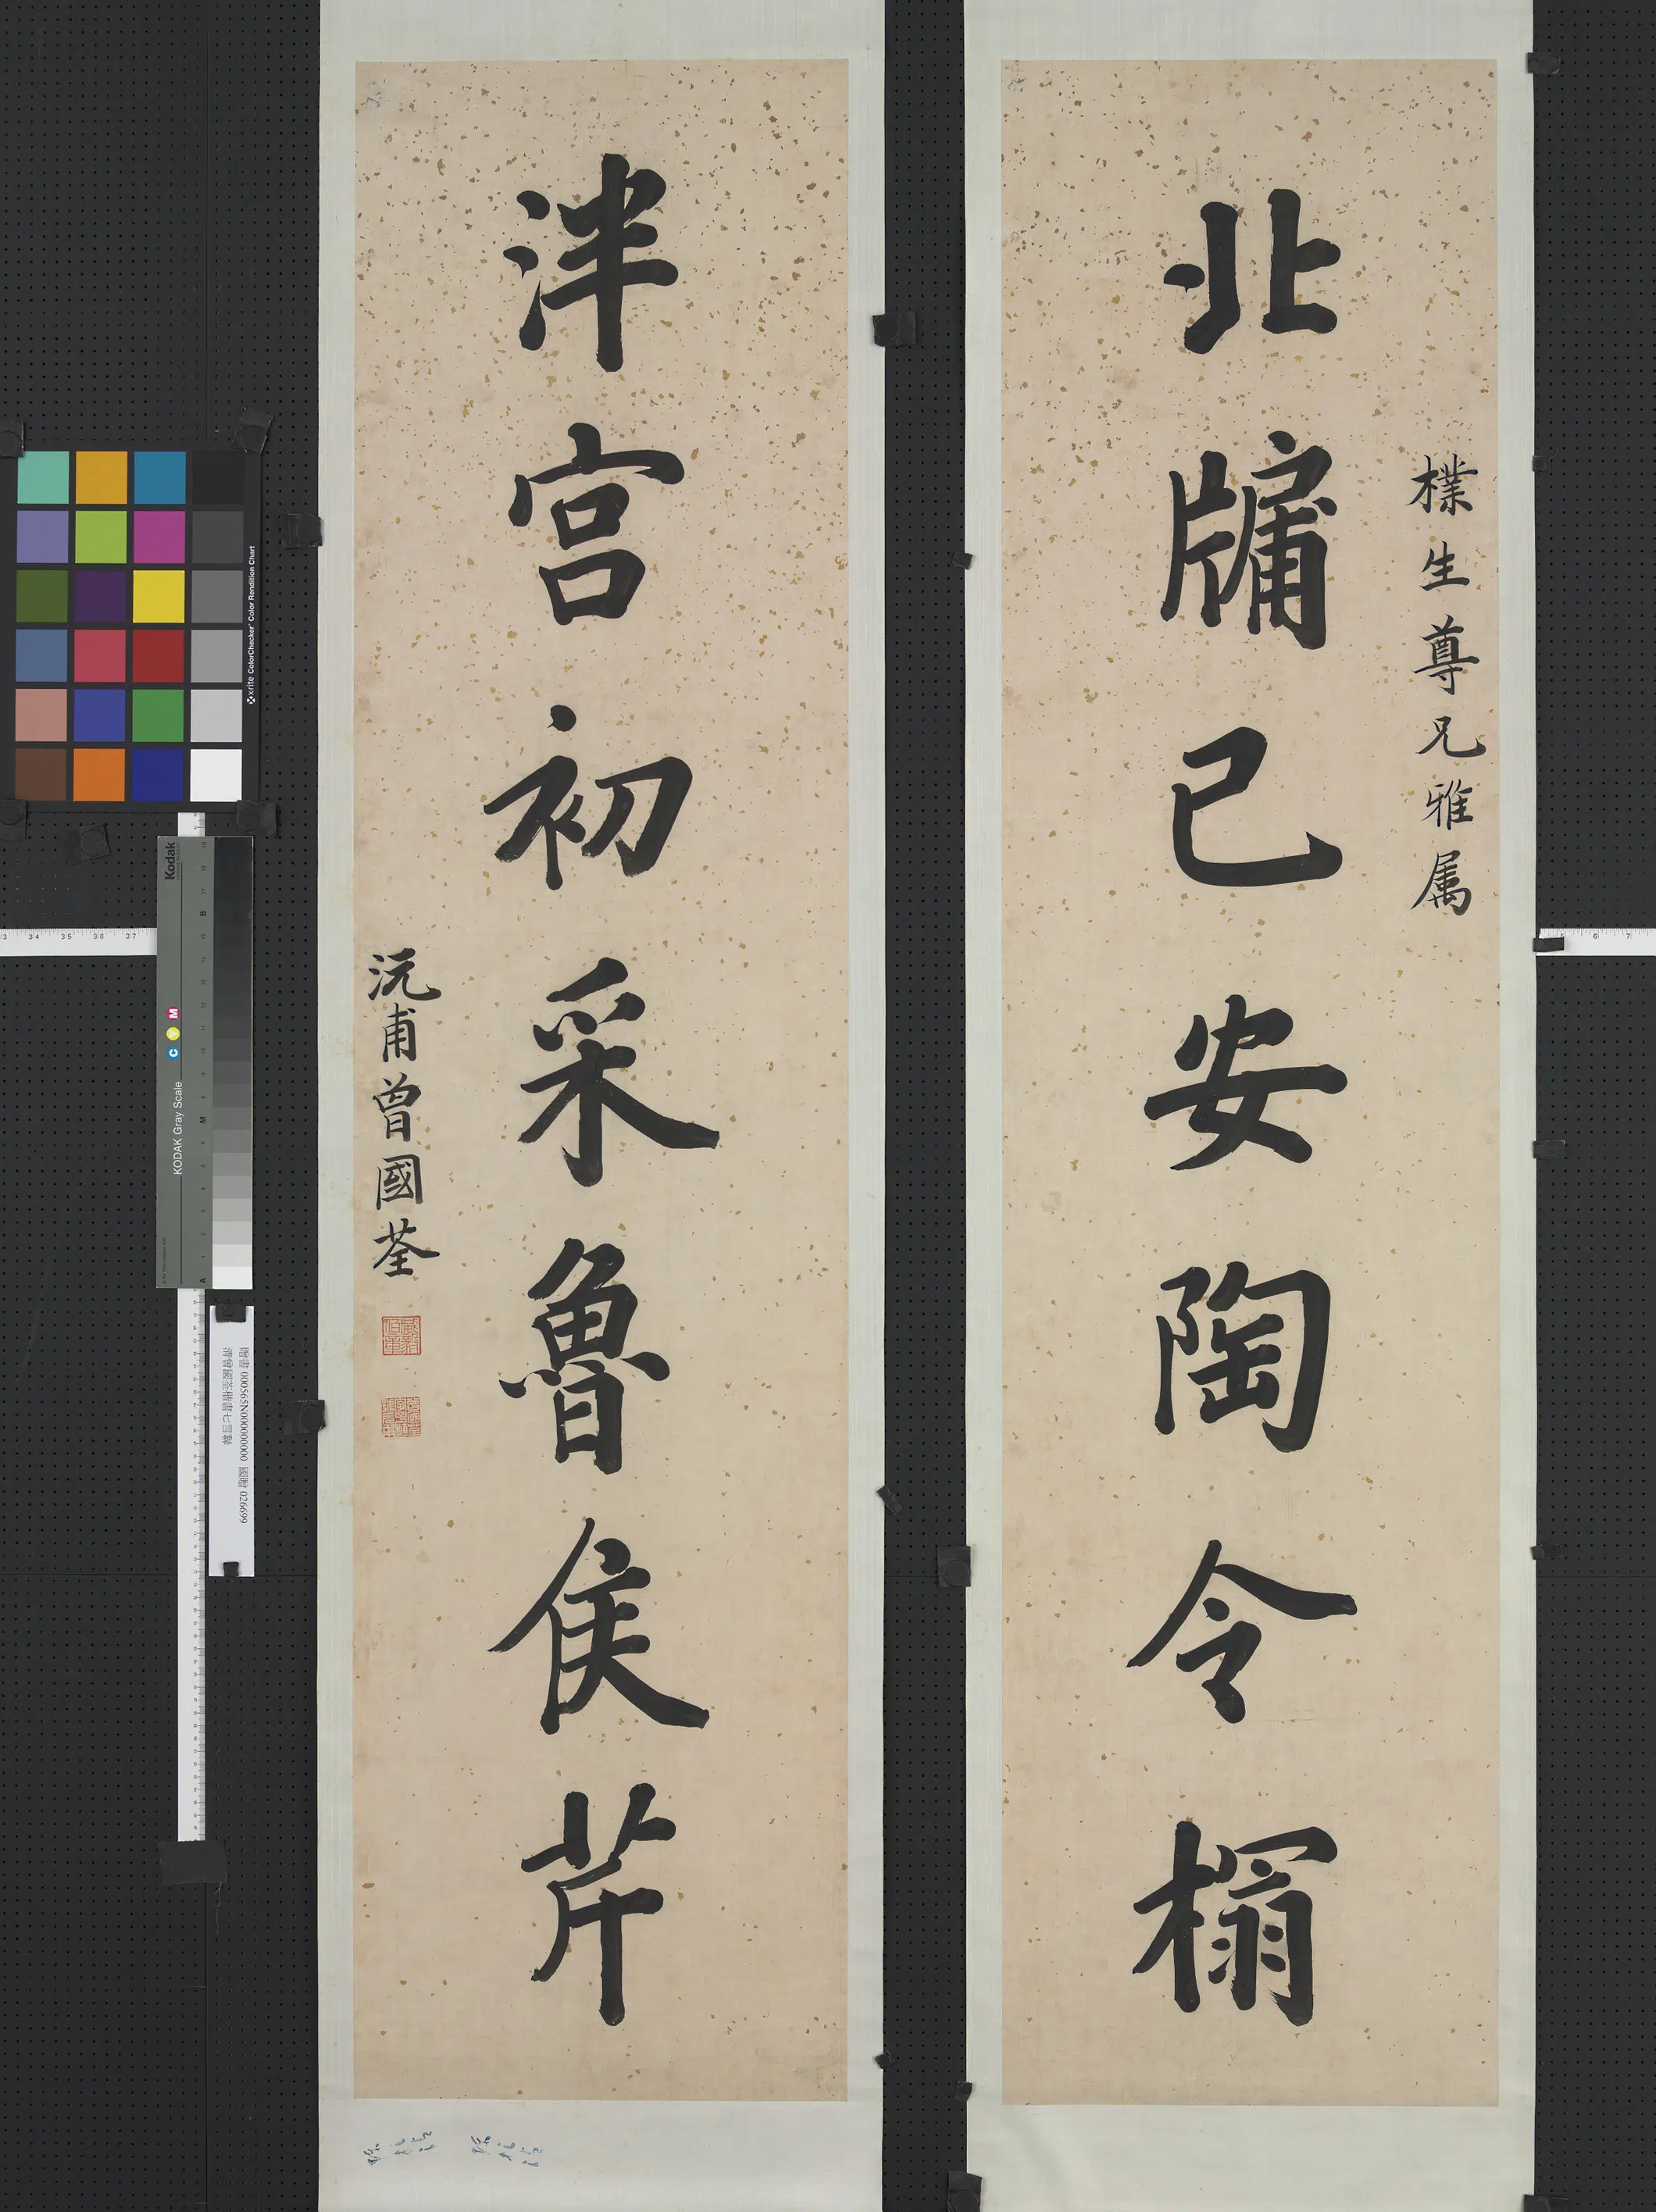 北牖已安陶令榻
樸生尊兄雅属
泮宮初采魯侯芹
沅甫曾國荃
贈書 000565N000000000 國贈 026699
清曾國荃楷書七言聯
x·rite ColorChecker Color Rendition Chart
Kodak
KODAK Gray Scale
C Y M